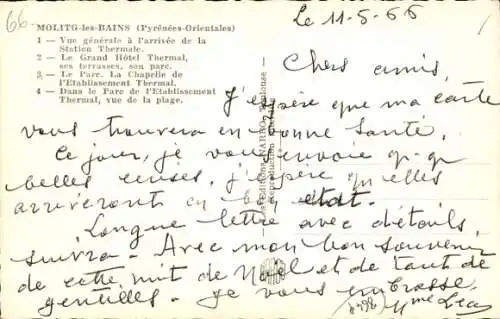 66
MOLITG-les-BAINS (Pyrénées-Orientales)
1 — Vue générale à l'arrivée de la
Station Thermale.
2 — Le Grand Hôtel Thermal,
ses terrasses, son parc.
3 — Le Parc. La Chapelle de
l'Etablissement Thermal.
4 — Dans le Parc de l'Etablissement
Thermal, vue de la plage.
Le 11-5-66
Chers amis,
J'espère que ma carte
vous trouvera en bonne santé.
Ce jour, je vous envoie qq-q
belles cerises, j'espère qu'elles
arriveront en bon état.
Longue lettre avec détails
suivra - Avec mon bon souvenir
de cette nuit de Noël et de tant de
gentilles - Je vous embrasse.
Mme